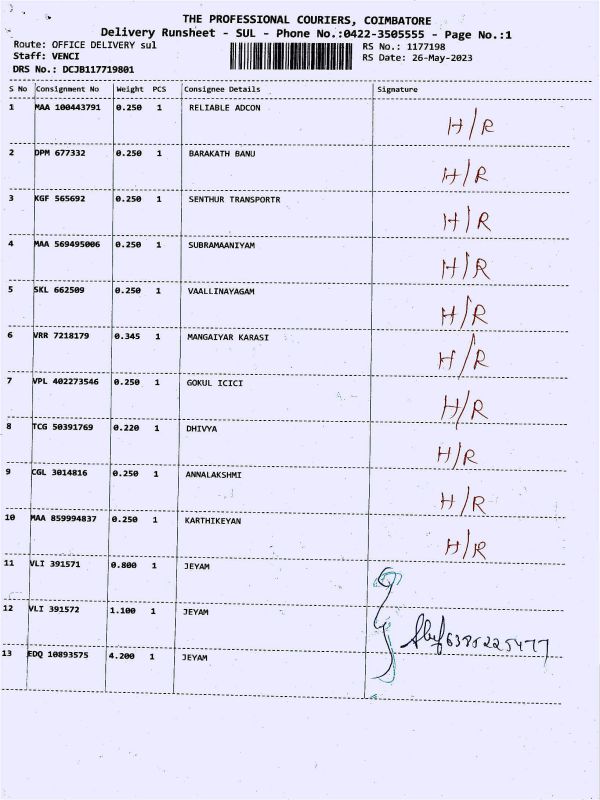 THE PROFESSIONAL COURIERS, COIMBATORE
Delivery Runsheet - SUL - Phone No.:0422-3505555 - Page No.:1
Route: OFFICE DELIVERY sul RS No.: 1177198
Staff: VENCI RS Date: 26-May-2023
DRS No.: DCJB117719801
S No Consignment No Weight PCS Consignee Details Signature
1 MAA 100443791 0.250 1 RELIABLE ADCON H/R
2 DPM 677332 0.250 1 BARAKATH BANU H/R
3 KGF 565692 0.250 1 SENTHUR TRANSPORTR H/R
4 MAA 569495006 0.250 1 SUBRAMAANIYAM H/R
5 SKL 662509 0.250 1 VAALLINAYAGAM H/R
6 VRR 7218179 0.345 1 MANGAIYAR KARASI H/R
7 VPL 402273546 0.250 1 GOKUL ICICI H/R
8 TCG 50391769 0.220 1 DHIVYA H/R
9 CGL 3014816 0.250 1 ANNALAKSHMI H/R
10 MAA 859994837 0.250 1 KARTHIKEYAN H/R
11 VLI 391571 0.800 1 JEYAM
12 VLI 391572 1.100 1 JEYAM
6385225477
13 EDQ 10893575 4.200 1 JEYAM